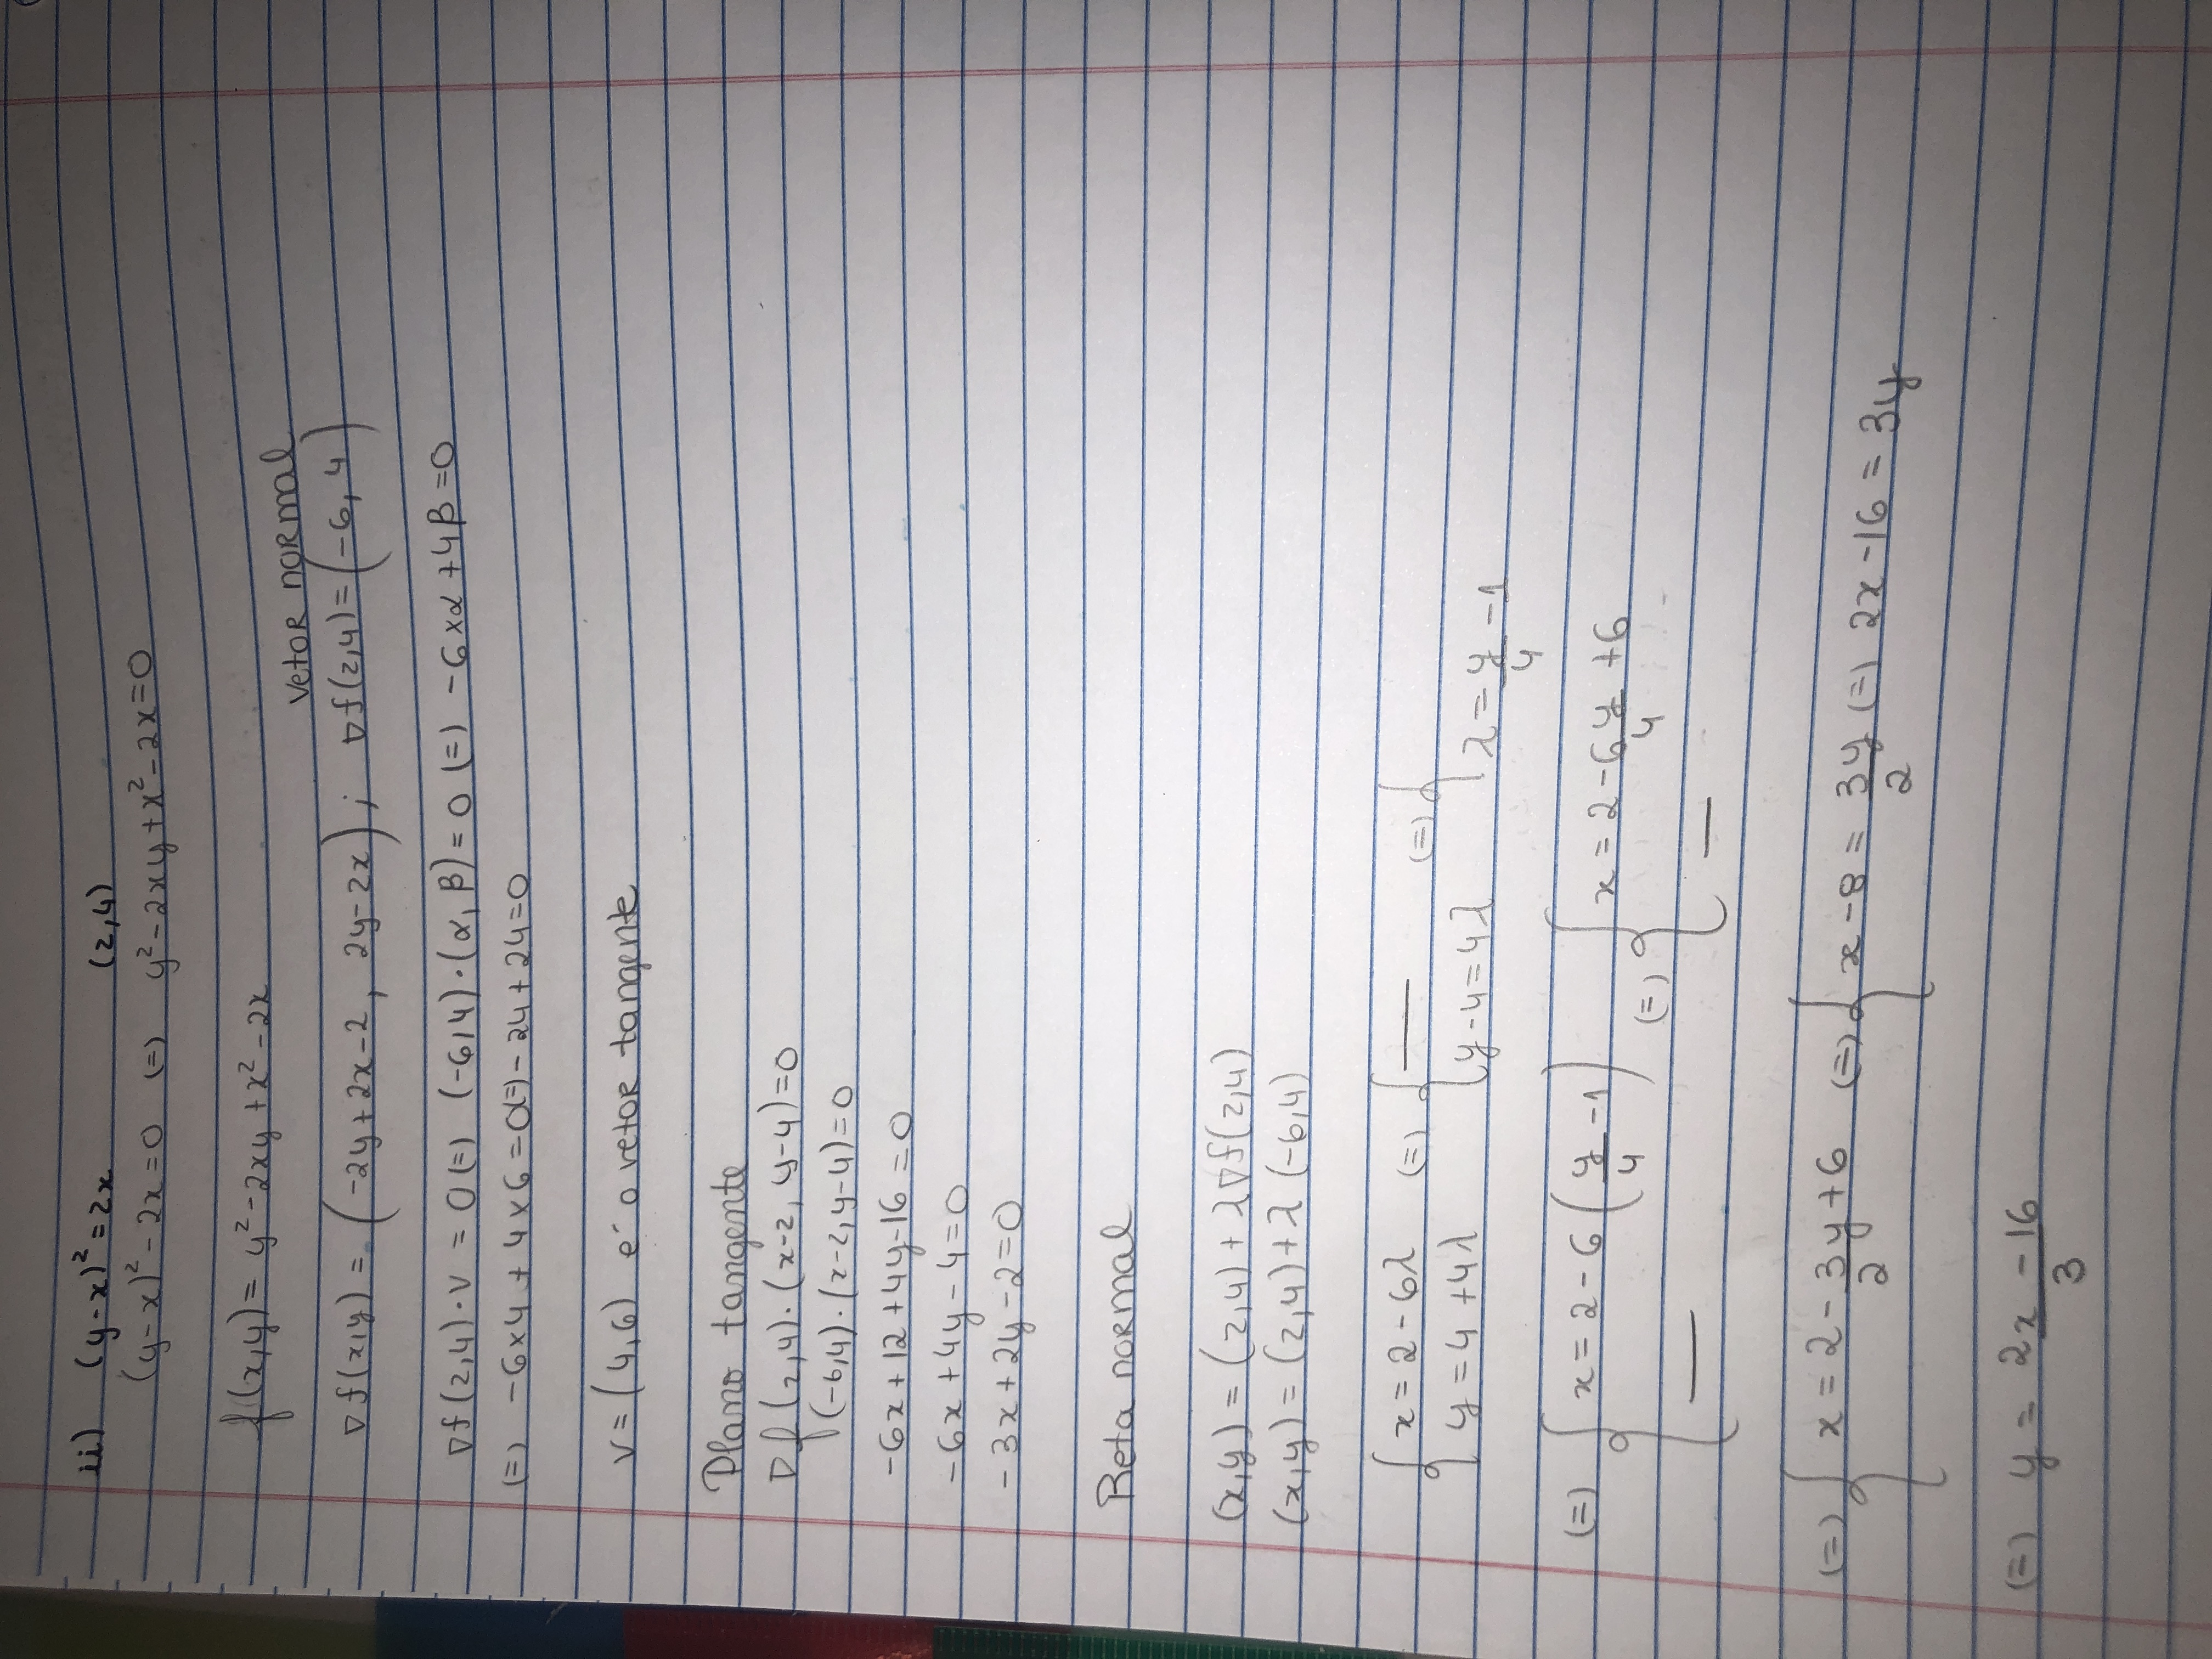 ii) (y-x)² = 2x (2,4)
(y-x)² - 2x = 0 (=) y² - 2xy + x² - 2x = 0
f(x,y) = y² - 2xy + x² - 2x
vetor normal
∇f(x,y) = (-2y+2x-2, 2y-2x) ; ∇f(2,4) = (-6, 4)
∇f(2,4)·v = 0 (=) (-6,4)·(α, β) = 0 (=) -6×α + 4β = 0
(=) -6×4 + 4×6 = 0 (=) -24 + 24 = 0
v = (4,6) é o vetor tangente
Plano tangente
∇f(2,4)·(x-2, y-4) = 0
(-6,4)·(x-2, y-4) = 0
-6x + 12 + 4y - 16 = 0
-6x + 4y - 4 = 0
-3x + 2y - 2 = 0
Reta normal
(x,y) = (2,4) + λ∇f(2,4)
(x,y) = (2,4) + λ (-6,4)
{ x = 2 - 6λ (=) { — (=) {
y = 4 + 4λ y - 4 = 4λ λ = y/4 - 1
(=) { x = 2 - 6 (y/4 - 1) (=) { x = 2 - 6y/4 + 6
— —
(=) { x = 2 - 3y/2 + 6 (=) { x - 8 = 3y/2 (=) 2x - 16 = 3y
(=) y = (2x - 16)/3